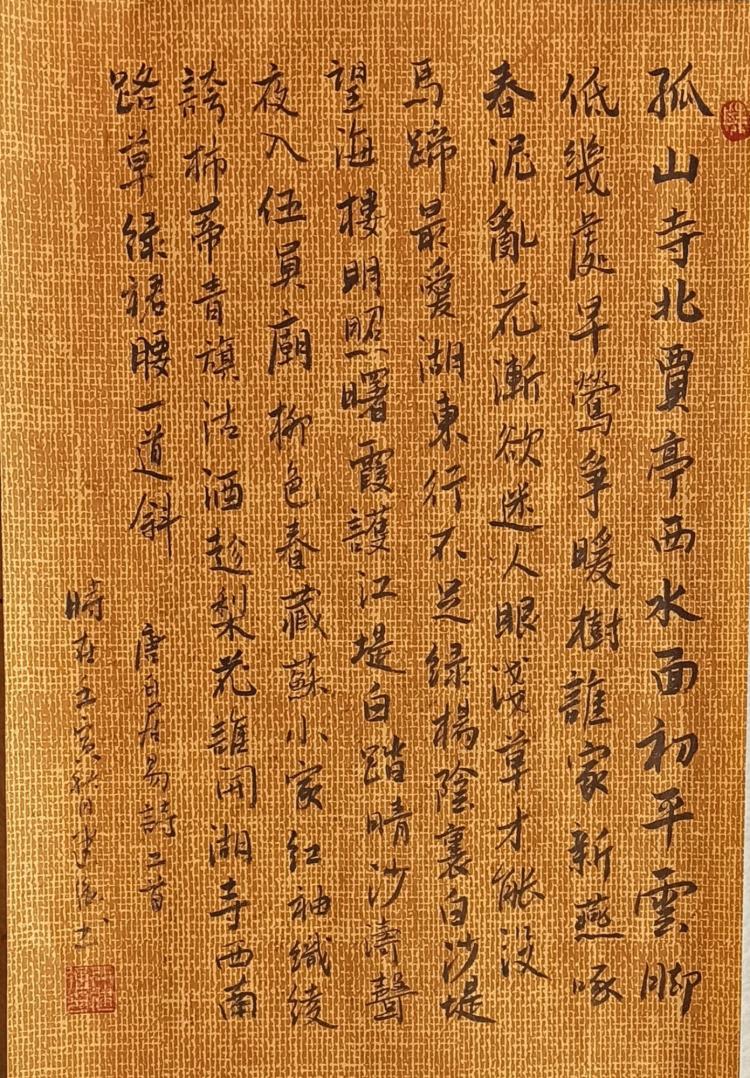 孤山寺北賈亭西水面初平雲脚
低幾處早鶯爭暖樹誰家新燕啄
春泥亂花漸欲迷人眼淺草才能没
馬蹄最愛湖東行不足緑楊陰裏白沙堤
望海樓明照曙霞護江堤白踏晴沙濤聲
夜入伍員廟柳色春藏蘇小家紅袖織綾
誇柿蒂青旗沽酒趁梨花誰開湖寺西南
路草緑裙腰一道斜
唐白居易詩二首
時在壬寅秋日